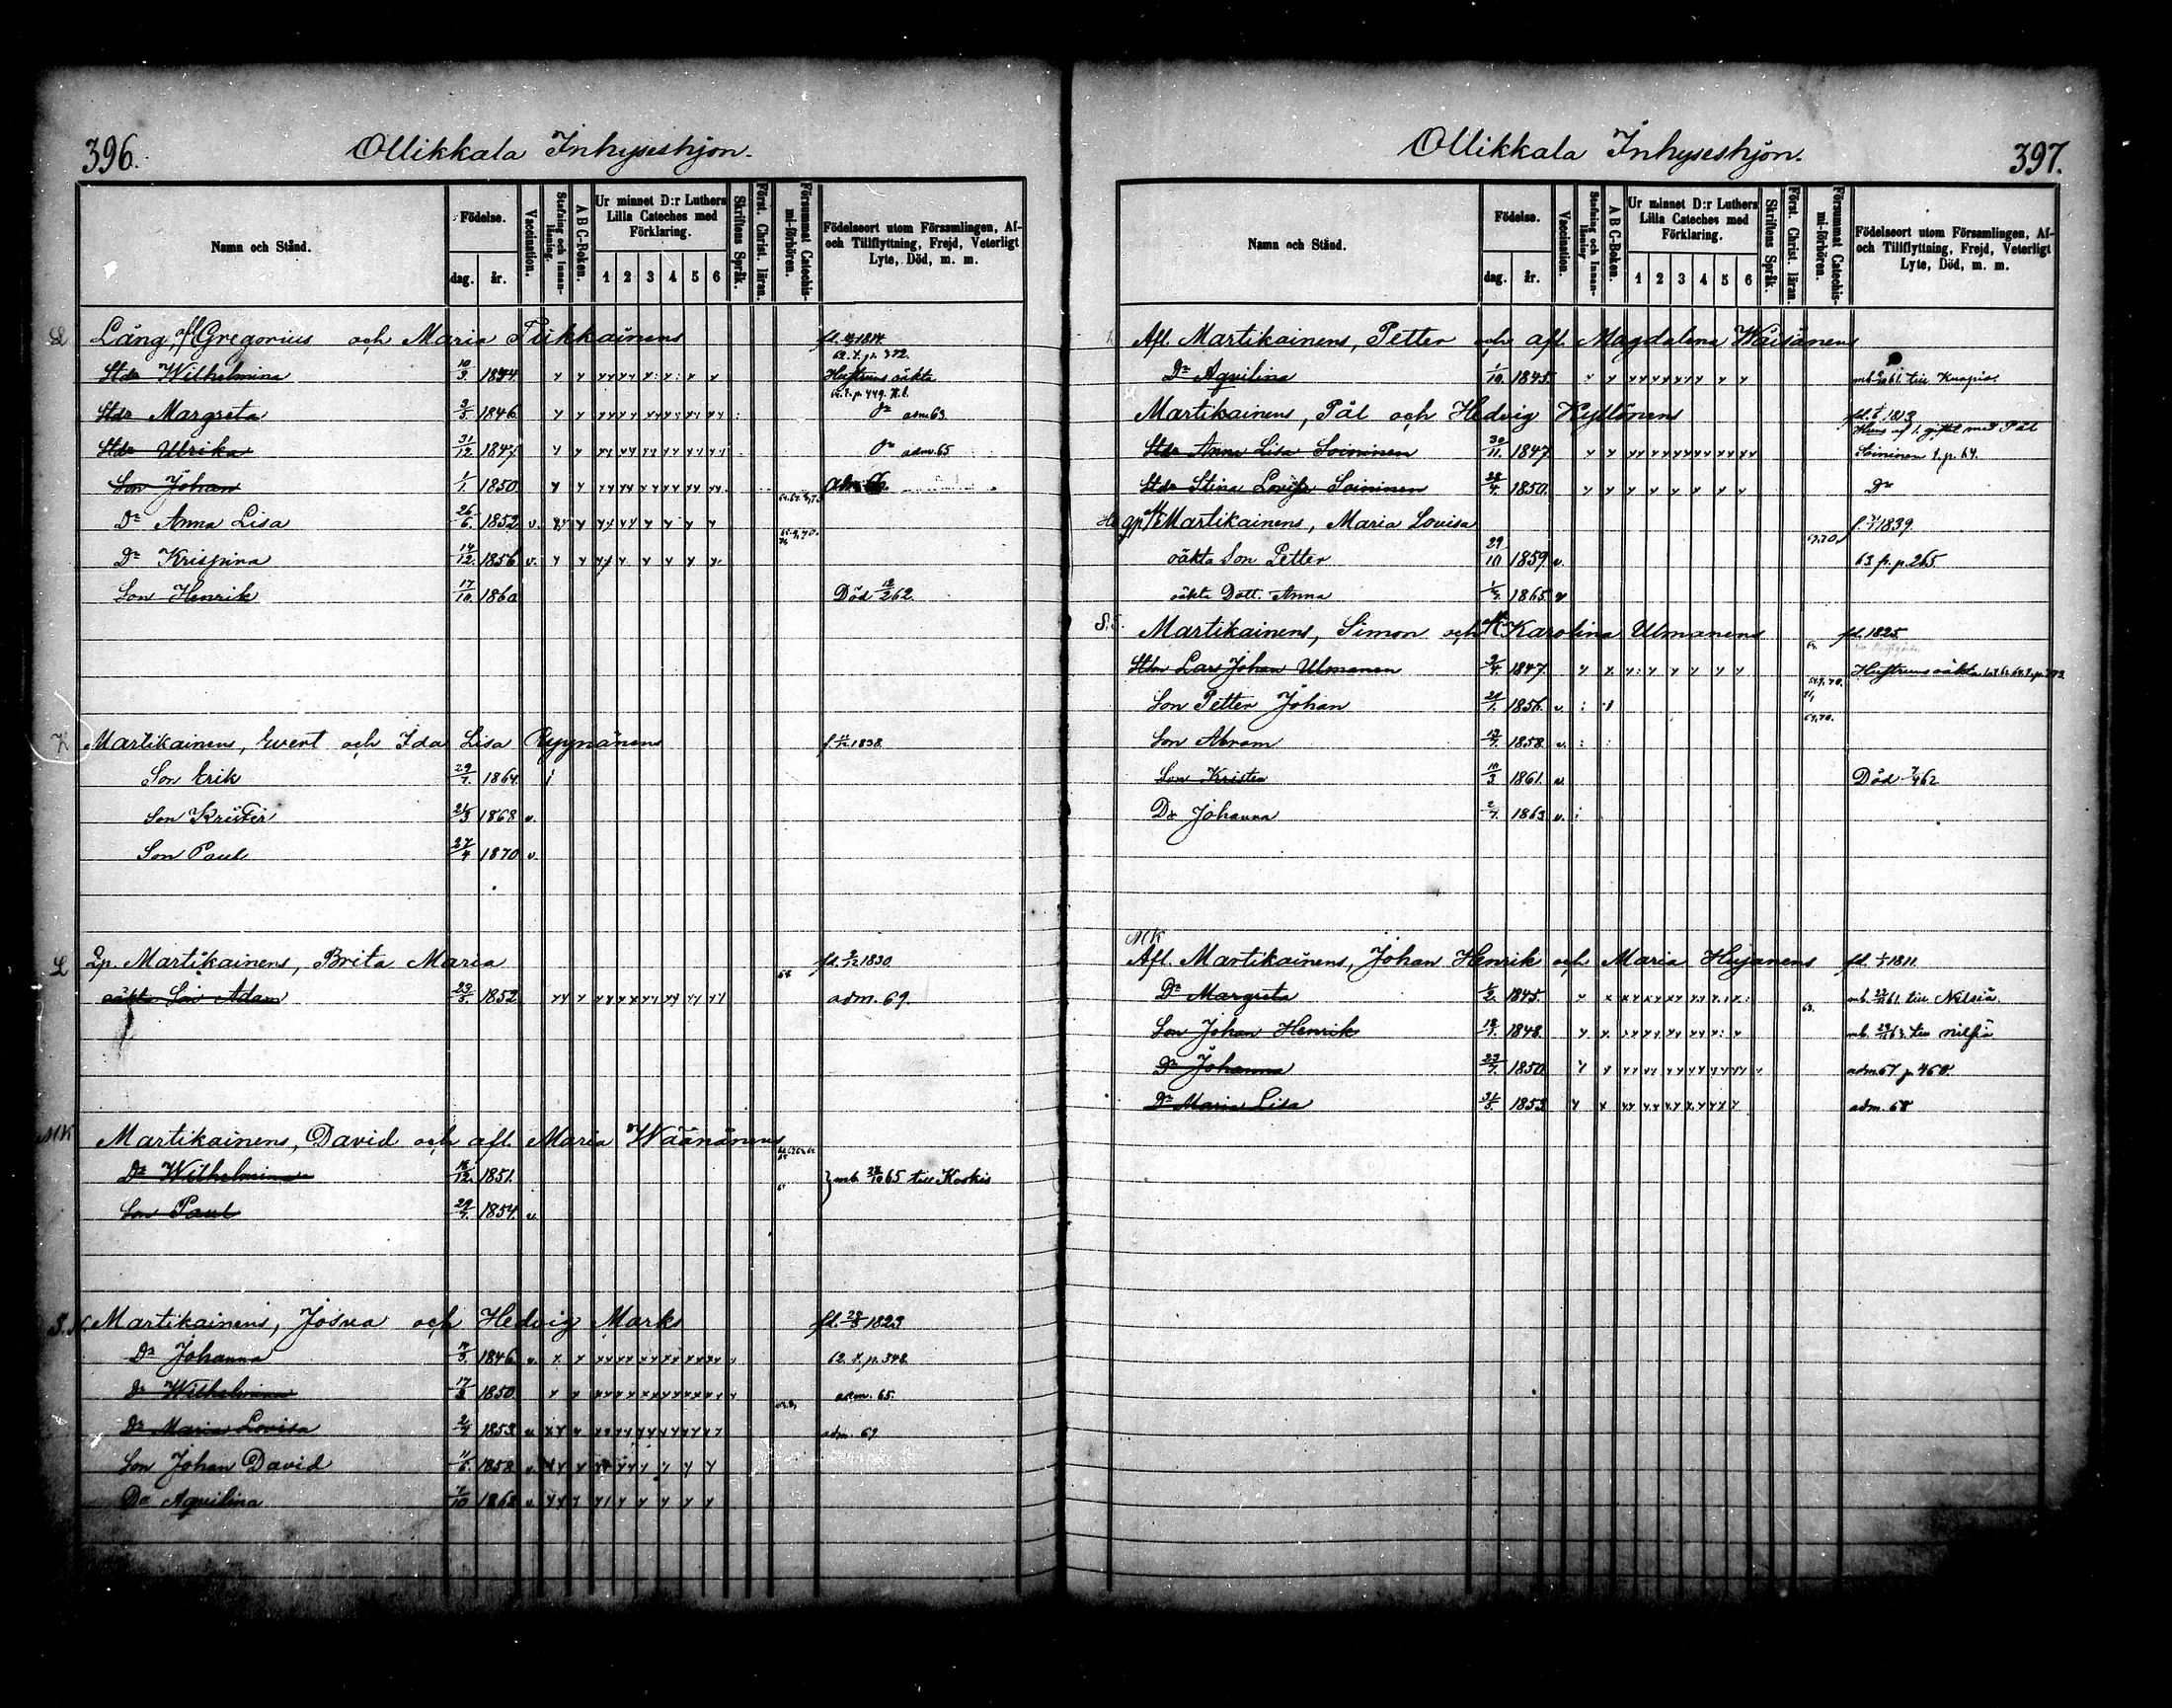 396.
Ollikkala Inhyseshjon.
Namn och Stånd.
Födelse.
dag. år.
Vaccination.
Stafning och Innanläsning.
A B C-Boken.
Ur minnet D:r Luthers Lilla Cateches med Förklaring.
1 2 3 4 5 6
Skriftens Språk.
Först. Christ. läran.
Försummat Catechismi-förhören.
Födelseort utom Församlingen, Af- och Tillflyttning, Frejd, Veterligt Lyte, Död, m. m.
Lång, afl Gregorius och Maria Tukkainens
62. X. p. 372.
Stdr Wilhelmina 10/3 1844 Hustruns oäkta
Stdr Margreta 3/3 1846 Dr adm. 63.
Stdr Ulrika 31/12 1847 Dr adm. 65
Son Johan 1/1. 1850
Dr Anna Lisa 26/6 1852 v.
Dr Krispina 14/12. 1856 v.
Son Henrik 17/10 1860 Död 18/2 62.
K Martikainens, Evert och Ida Lisa Ryynänens 1838.
Son Erik 29/7. 1864
Son Krister 21/3 1868 v.
Son Paul 27/4 1870 v.
L Lp. Martikainens, Brita Maria fd. 1830
68
oäkta Son Adam 23/3 1852 adm. 69.
MK Martikainens, David och afl. Maria Wäänänens
Dr Wilhelmina 18/12. 1851. } mb. 28/10 65 till Koskis
Son Paul 29/7. 1854 v.
S. Martikainens, Josva och Hedvig Marks fd. 28/8 1823
Dr Johanna 1846 v. 62. X. p. 348.
Dr Wilhelmina 17/3 1850 adm. 65.
Dr Maria Lovisa 2/4 1853 v adm. 69
Son Johan David 11/6. 1858 v.
Dr Aquilina 7/10 1862 v
397.
Ollikkala Inhyseshjon.
Namn och Stånd.
Födelse.
dag. år.
Vaccination.
Stafning och Innanläsning
A B C-Boken.
Ur minnet D:r Luthers Lilla Cateches med Förklaring.
1 2 3 4 5 6
Skriftens Språk.
Först. Christ. läran.
Försummat Catechismi-förhören.
Födelseort utom Församlingen, Af- och Tillflyttning, Frejd, Veterligt Lyte, Död, m. m.
Afl. Martikainens, Petter och afl. Magdalena Waisänens
Dr Aquilina 1/10. 1845. till Kuopio.
Martikainens, Pål och Hedvig Kyllönens 1813
Hens af 1. giftet med Pål
Stdr Anna Lisa Soininen 30/11. 1847 Soininen
Stdr Stina Lovisa Soininen 28/4 1850. Dr
Martikainens, Maria Lovisa 1839.
69.70.
oäkta Son Petter 29/10 1859 v. 63 p. p. 265
oäkta Dott. Anna 1865 v
Martikainens, Simon och Karolina Ulmanens fd. 1825
Stdr Lars Johan Ulmanen 9/4 1847. Hustruns oäkta
Son Petter Johan 1856. v.
69.70.
Son Abram 1858 v.
Son Krister 10/3 1861. v. Död 7/4 62
Dr Johanna 2/7. 1863 v.
MK
Afl. Martikainens, Johan Henrik och Maria Hujanens fd. 1811.
Dr Margreta 1/2. 1845. till Nilsiä.
63.
Son Johan Henrik 18/1. 1848. till Nilsiä
Dr Johanna 23/7. 1850 adm 67 p. 460.
Dr Maria Lisa 31/3. 1853 adm. 68